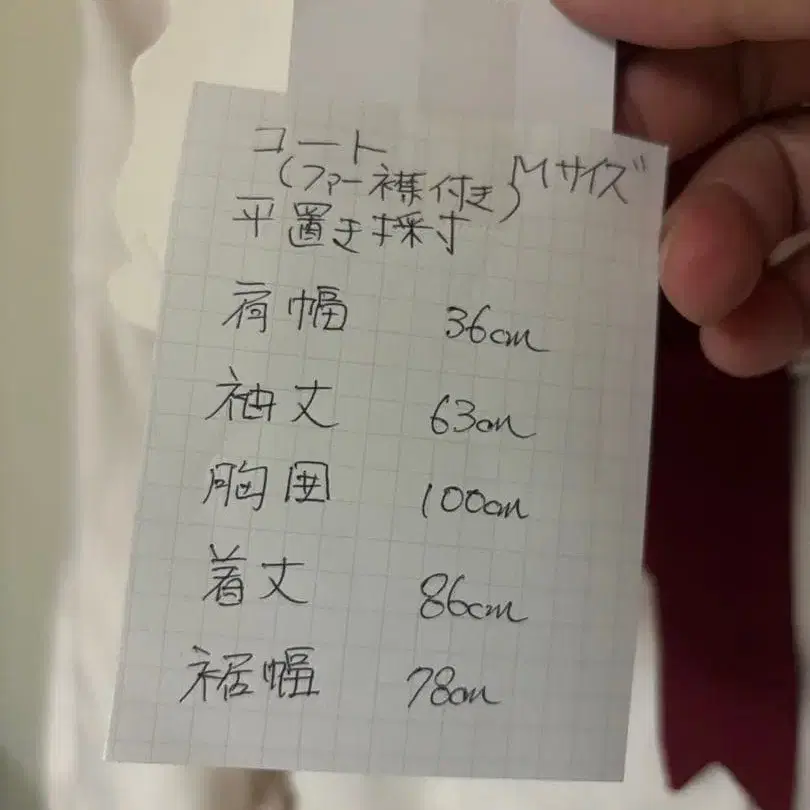 コート
(ファー襟付き } Mサイズ
平置き採寸
肩幅 36cm
袖丈 63cm
胸囲 100cm
着丈 86cm
裾幅 78cm